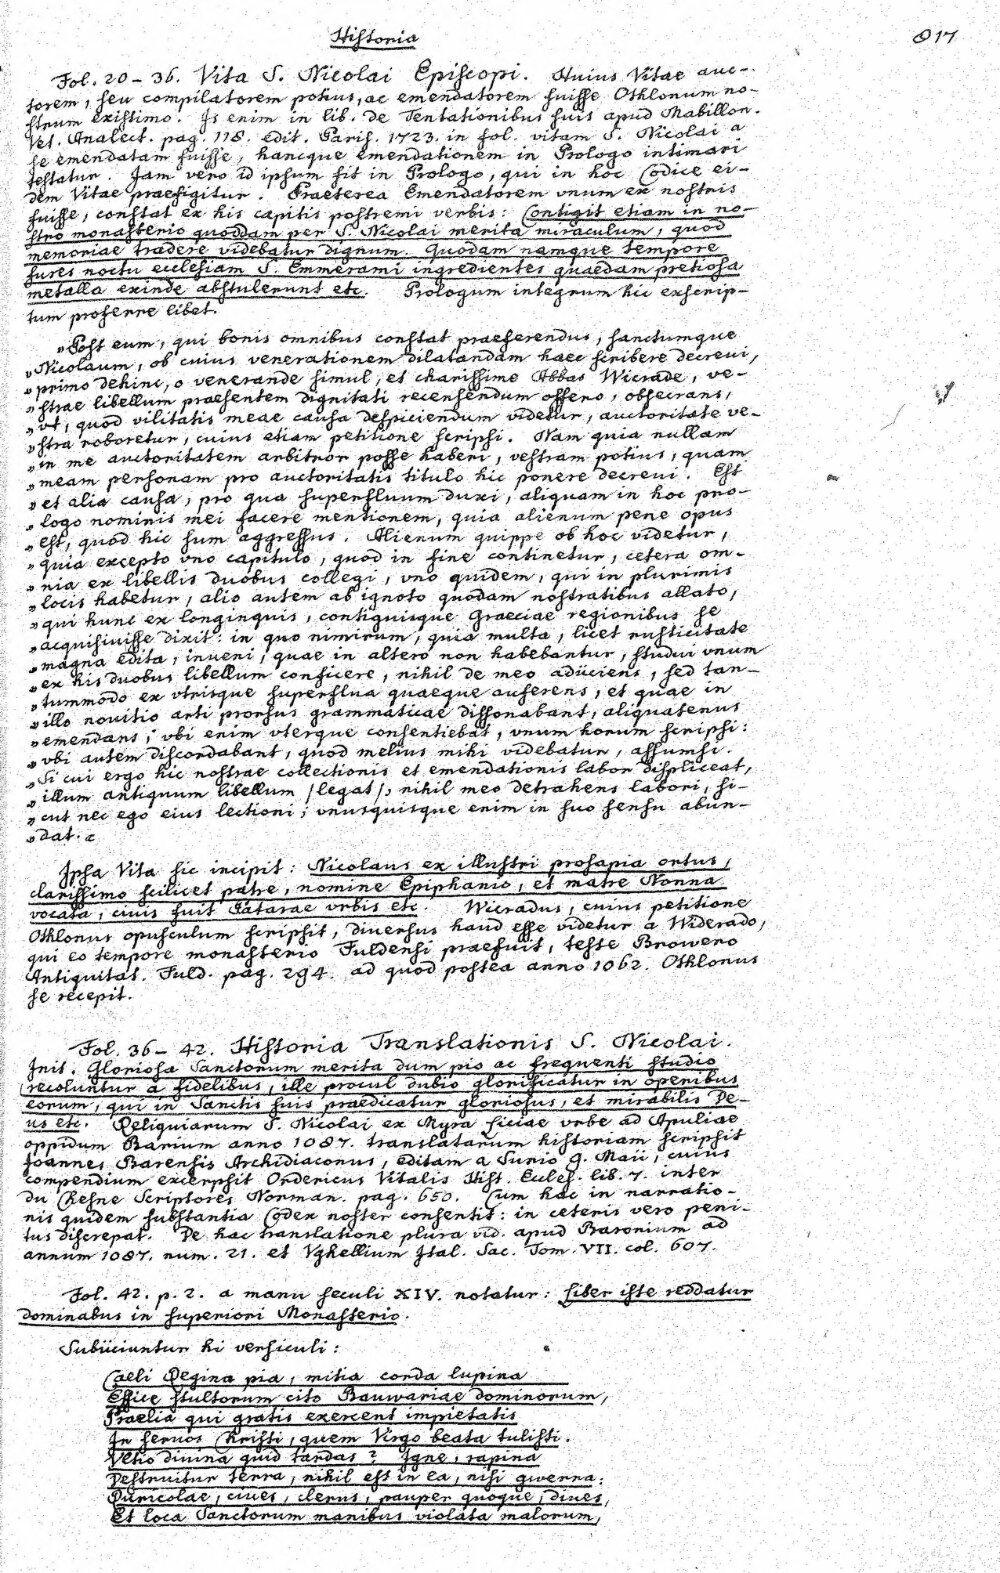 Historia
817
Fol. 20-36. Vita S. Nicolai Episcopi. Huius Vitae auc-
torem, seu compilatorem potius, ac emendatorem fuisse Othlonum no-
strum existimo. Is enim in lib. de Tentationibus suis apud Mabillon.
Vet. Analect. pag. 118. edit. Paris. 1723. in fol. vitam S. Nicolai a
se emendatam fuisse, hancque emendationem in Prologo intimari
testatur. Iam vero id ipsum fit in Prologo, qui in hoc Codice ei-
dem Vitae praefigitur. Praeterea Emendatorem unum ex nostris
fuisse, constat ex his capitis postremi verbis: Contigit etiam in no-
stro monasterio quoddam per S. Nicolai merita miraculum, quod
memoriae tradere videbatur dignum. Quodam namque tempore
fures noctu ecclesiam S. Emmerami ingredientes quaedam pretiosa
metalla exinde abstulerunt etc. Prologum integrum hic exscrip-
tum proferre libet.
„Post eum, qui bonis omnibus constat praeferendus, sanctumque
„Nicolaum, ob cuius venerationem dilatandam haec scribere decrevi,
„primo dehinc, o venerande simul, et charissime Abbas Wicrade, ve-
„strae libellum praesentem dignitati recensendum offero, obsecrans,
„vt, quod vilitatis meae causa despiciendum videtur, auctoritate ve-
„stra roboretur, cuius etiam petitione scripsi. Nam quia nullam
„in me auctoritatem arbitror posse haberi, vestram potius, quam
„meam personam pro auctoritatis titulo hic ponere decrevi. Est
„et alia causa, pro qua superfluum duxi, aliquam in hoc pro-
„logo nominis mei facere mentionem, quia alienum pene opus
„est, quod hic sum aggressus. Alienum quippe ob hoc videtur,
„quia excepto vno capitulo, quod in fine continetur, cetera om-
„nia ex libellis duobus collegi, vno quidem, qui in plurimis
„locis habetur, alio autem ab ignoto quodam nostratibus allato,
„qui hunc ex longinquis, contiguisque Graeciae regionibus se
„acquisivisse dixit: in quo nimirum, quia multa, licet rusticitate
„magna edita, inveni, quae in altero non habebantur, studui vnum
„ex his duobus libellum conficere, nihil de meo adiiciens, sed tan-
„tummodo ex vtrisque superflua quaeque auferens, et quae in
„illo novitio arti prorsus grammaticae dissonabant, aliquatenus
„emendans; vbi enim vterque consentiebat, vnum horum scripsi:
„vbi autem discordabant, quod melius mihi videbatur, assumsi.
„Si cui ergo hic nostrae collectionis et emendationis labor displiceat,
„illum antiquum libellum /legat/, nihil meo detrahens labori, si-
„cut nec ego eius lectioni; vnusquisque enim in suo sensu abun-
„dat. “
Ipsa Vita sic incipit: Nicolaus ex illustri prosapia ortus,
clarissimo scilicet patre, nomine Epiphanio, et matre Nonna
vocata, civis fuit Patarae vrbis etc. Wicradus, cuius petitione
Othlonus opusculum scripsit, diversus haud esse videtur a Widerado,
qui eo tempore monasterio Fuldensi praefuit, teste Browero
Antiquitat. Fuld. pag. 294. ad quod postea anno 1062. Othlonus
se recepit.
Fol. 36-42. Historia Translationis S. Nicolai.
Init. Gloriosa Sanctorum merita dum pio ac frequenti studio
recoluntur a fidelibus, ille procul dubio glorificatur in operibus
eorum, qui in Sanctis suis praedicatur gloriosus, et mirabilis De-
us etc. Reliquiarum S. Nicolai ex Myra Liciae vrbe ad Apuliae
oppidum Barium anno 1087. translatarum historiam scripsit
Joannes Barensis Archidiaconus, editam a Surio 9. Maii, cuius
compendium excerpsit Ordericus Vitalis Hist. Eccles. lib. 7. inter
du Chesne Scriptores Norman. pag. 650. Cum hac in narratio-
nis quidem substantia Codex noster consentit: in ceteris vero peni-
tus discrepat. De hac translatione plura vid. apud Baronium ad
annum 1087. num. 21. et Vghellium Ital. Sac. Tom. VII. col. 607.
Fol. 42. p. 2. a manu seculi XIV. notatur: Liber iste reddatur
dominabus in superiori Monasterio.
Subiiciuntur hi versiculi:
Caeli Regina pia, mitia corda lupina
Effice stultorum cito Bauwariae dominorum,
Praelia qui gratis exercent impietatis
In servos Christi, quem Virgo beata tulisti.
Vltio divina quid tardas? Igne, rapina
Destruitur terra, nihil est in ea, nisi gwerra:
Ruricolae, cives, clerus, pauper quoque, dives,
Et loca Sanctorum manibus violata malorum,